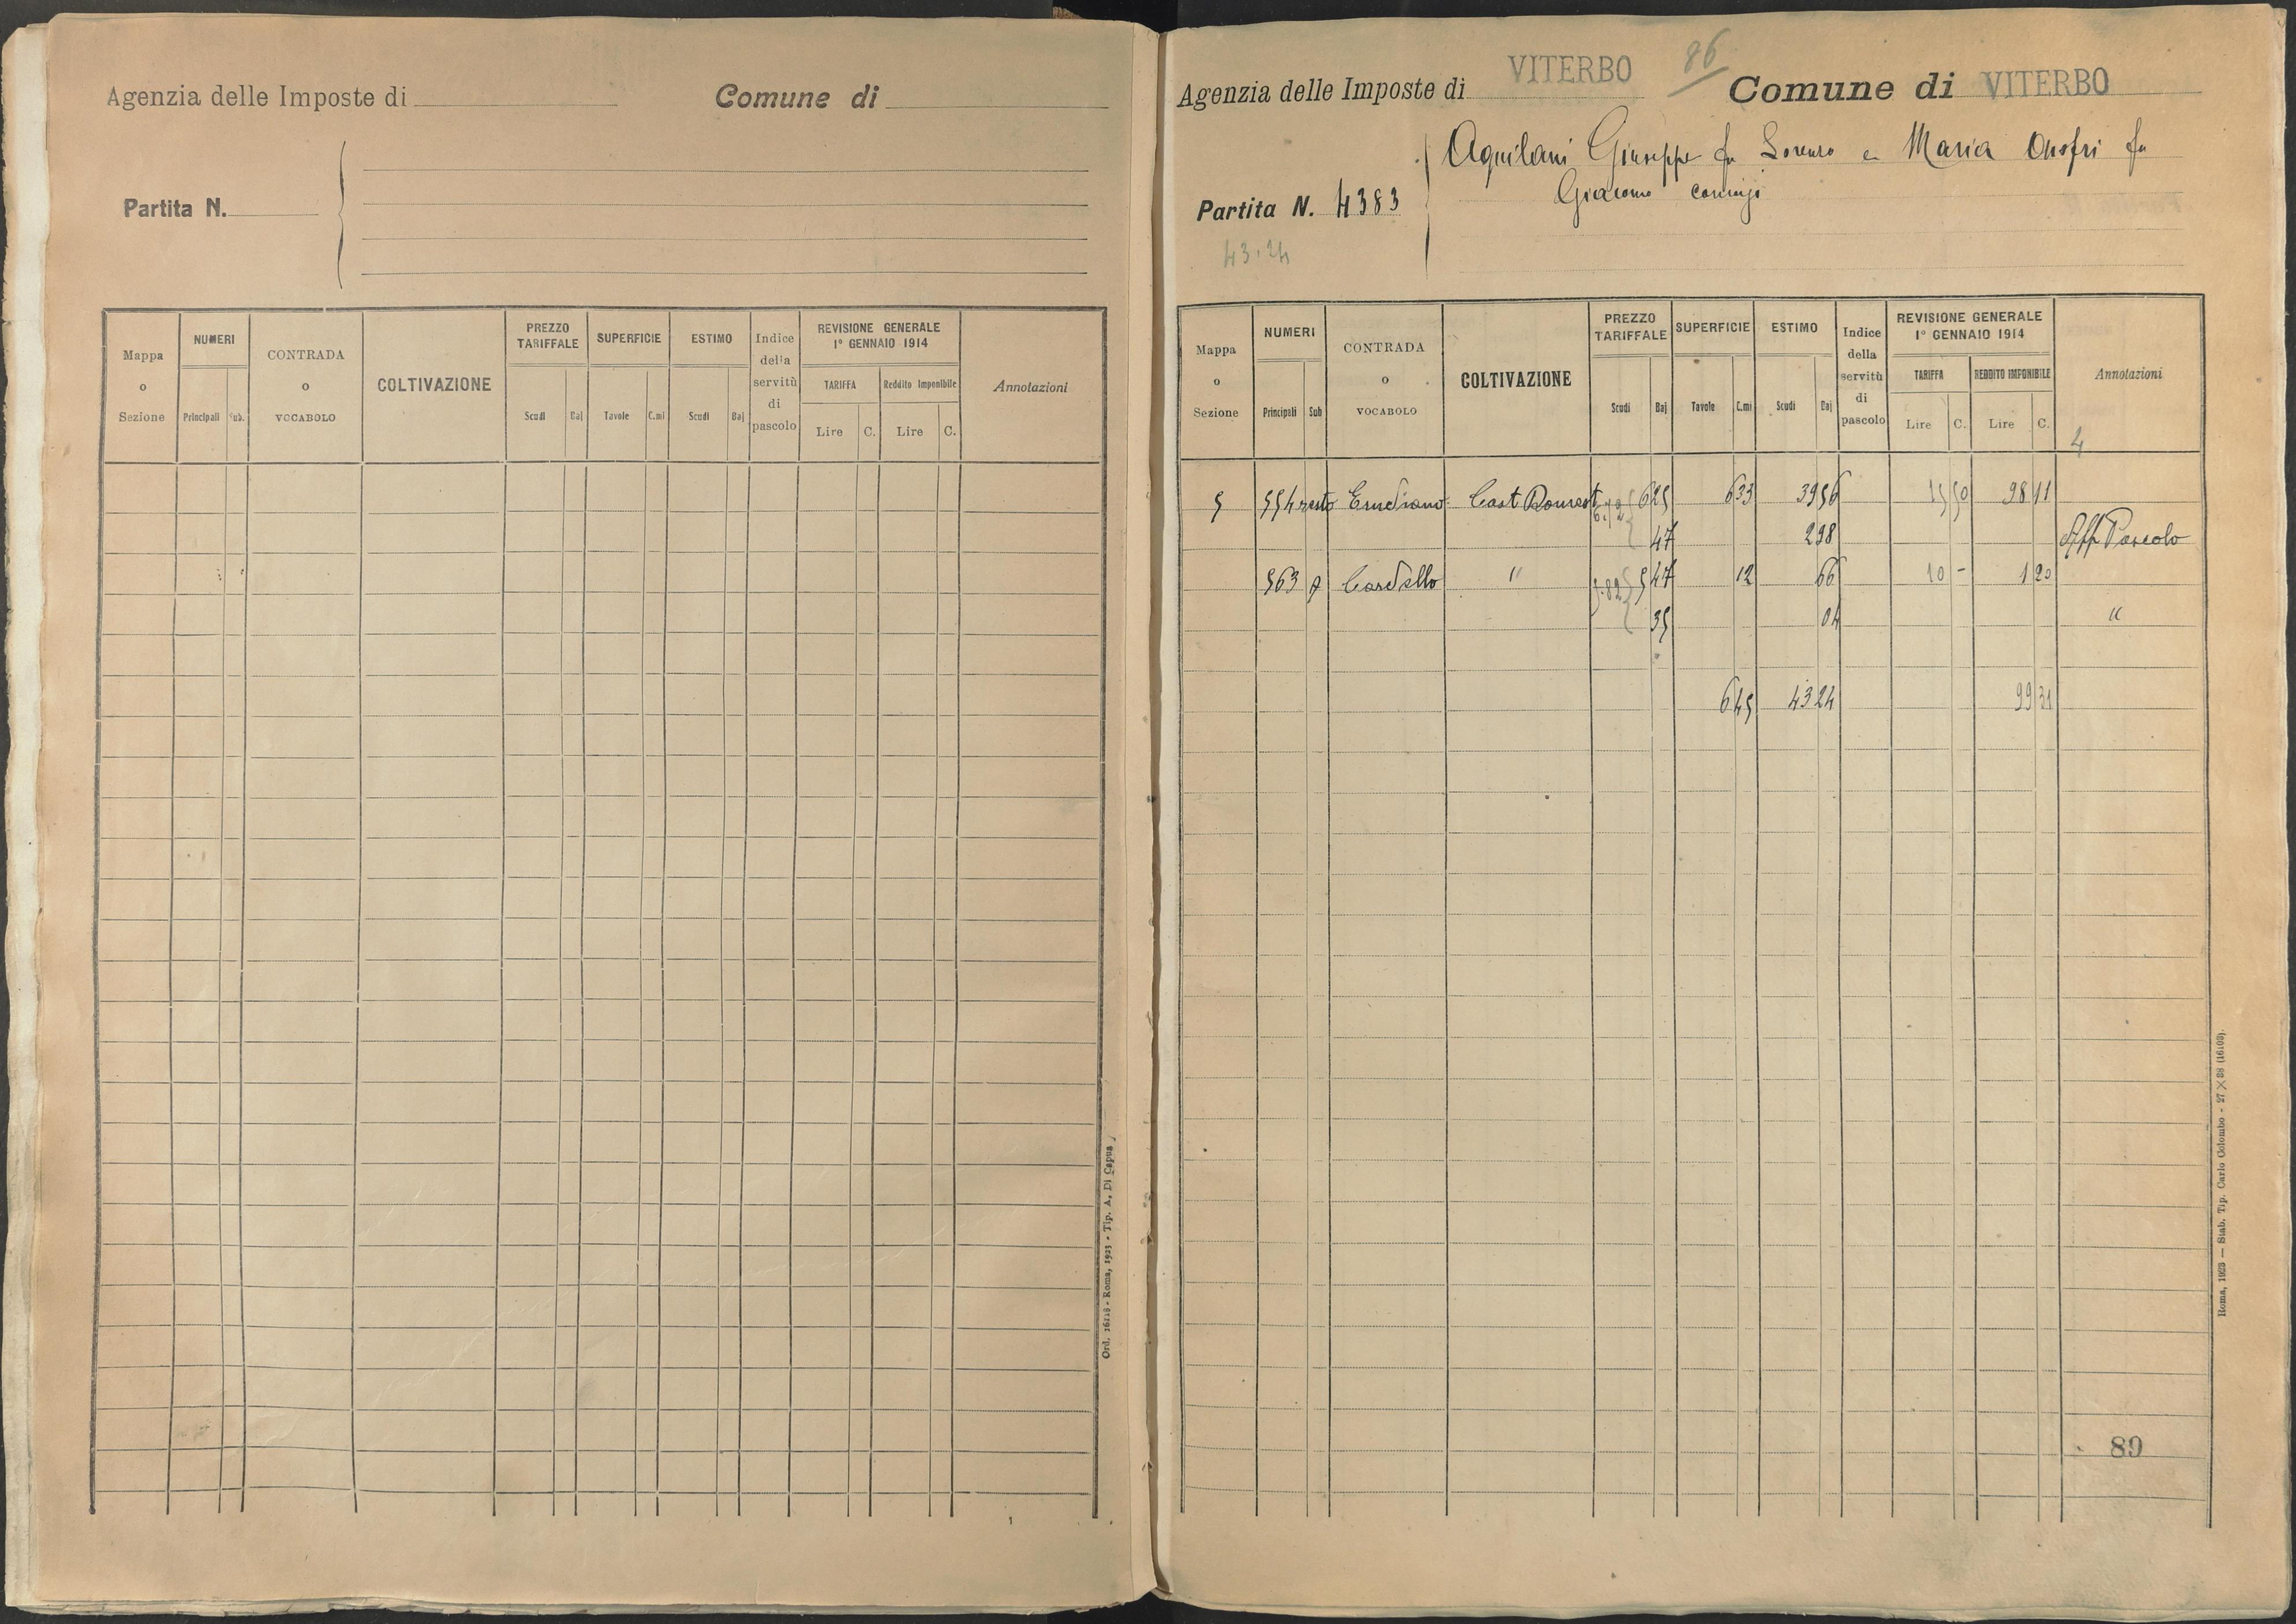 Agenzia delle Imposte di
Comune di
Partita N.
Mappa o Sezione
NUMERI
Principali
Sub.
CONTRADA o VOCABOLO
COLTIVAZIONE
PREZZO TARIFFALE
Scudi
Baj
SUPERFICIE
Tavole
C.mi
ESTIMO
Scudi
Baj
Indice della servitù di pascolo
REVISIONE GENERALE
1° GENNAIO 1914
TARIFFA
Lire
C.
Reddito Imponibile
Lire
C.
Annotazioni
Ord. 16118 - Roma, 1923 - Tip. A. Di Capua
Agenzia delle Imposte di VITERBO
86
Comune di VITERBO
Aquilani Giuseppe fu Lorenzo e Maria Onofri fu
Giacomo coniugi
Partita N. 4383
43.24
Mappa o Sezione
NUMERI
Principali
Sub
CONTRADA o VOCABOLO
COLTIVAZIONE
PREZZO TARIFFALE
Scudi
Baj
SUPERFICIE
Tavole
C.mi
ESTIMO
Scudi
Baj
Indice della servitù di pascolo
REVISIONE GENERALE
1° GENNAIO 1914
TARIFFA
Lire
C.
REDDITO IMPONIBILE
Lire
C.
Annotazioni
4
5 554 resto Cast 6.72 6 25 6 33 39 56 15 50 98 11
47 2 98 Aff Pascolo
563 Cardello " 5.82 5 47 12 66 10 - 1 20
35 04 "
6 45 43 24 99 31
89
Roma, 1923 — Stab. Tip. Carlo Colombo - 27 X 88 (16103)